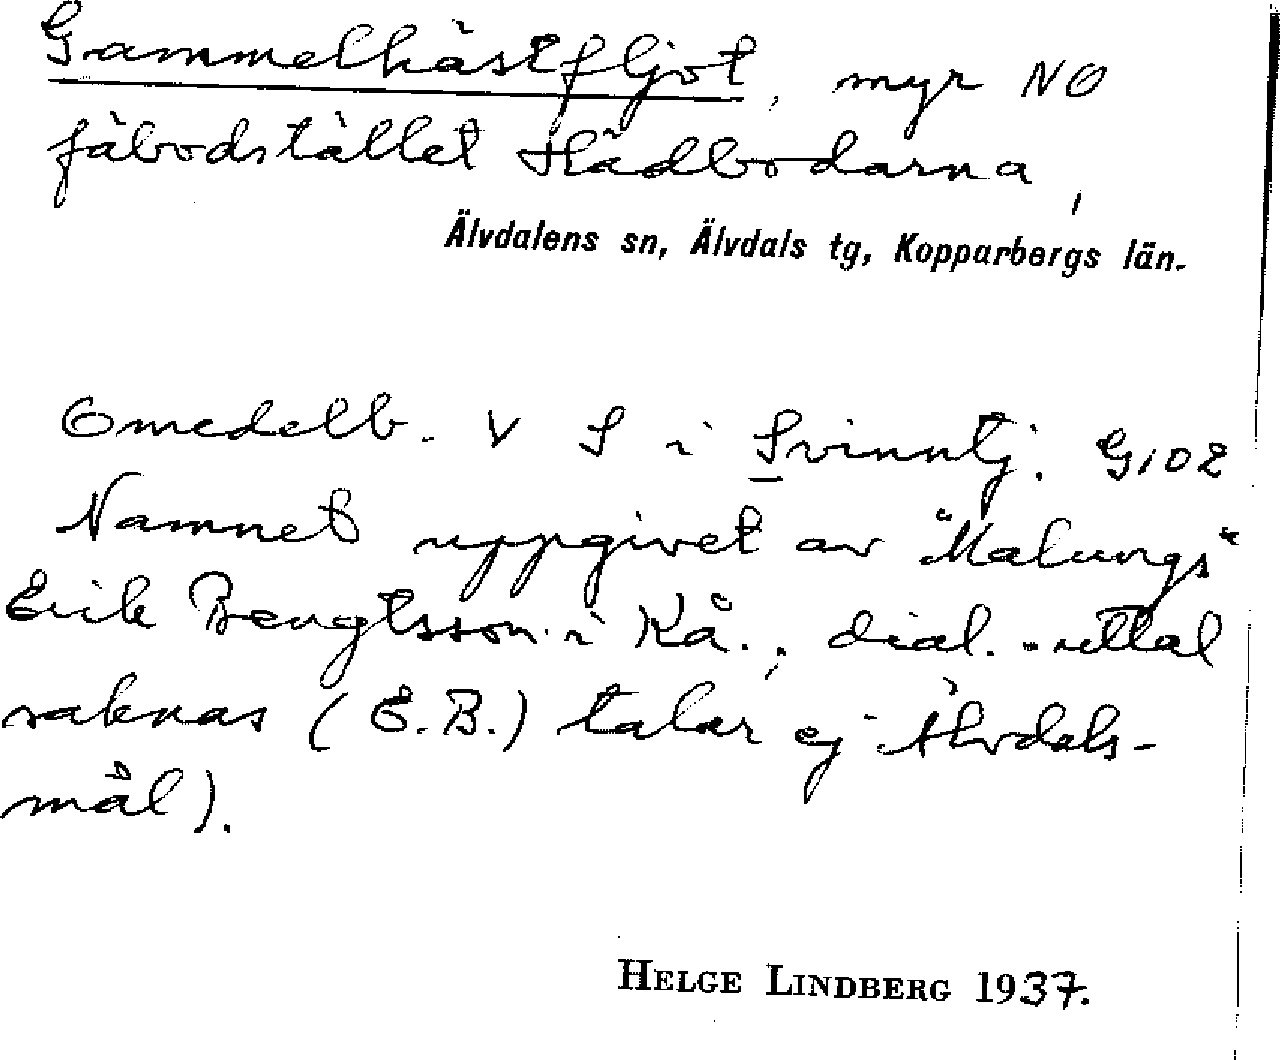 Gammelhästfljot, myr NO
fäbodstället Hådbodarna,
Älvdalens sn, Älvdals tg, Kopparbergs län.
Omedelb. V S i Svinntj. G102
Namnet uppgivet av "Malungs"
Erik Bengtsson i Kå., dial. -uttal
saknas (E.B.) talar ej Älvdals-
mål).
HELGE LINDBERG 1937.